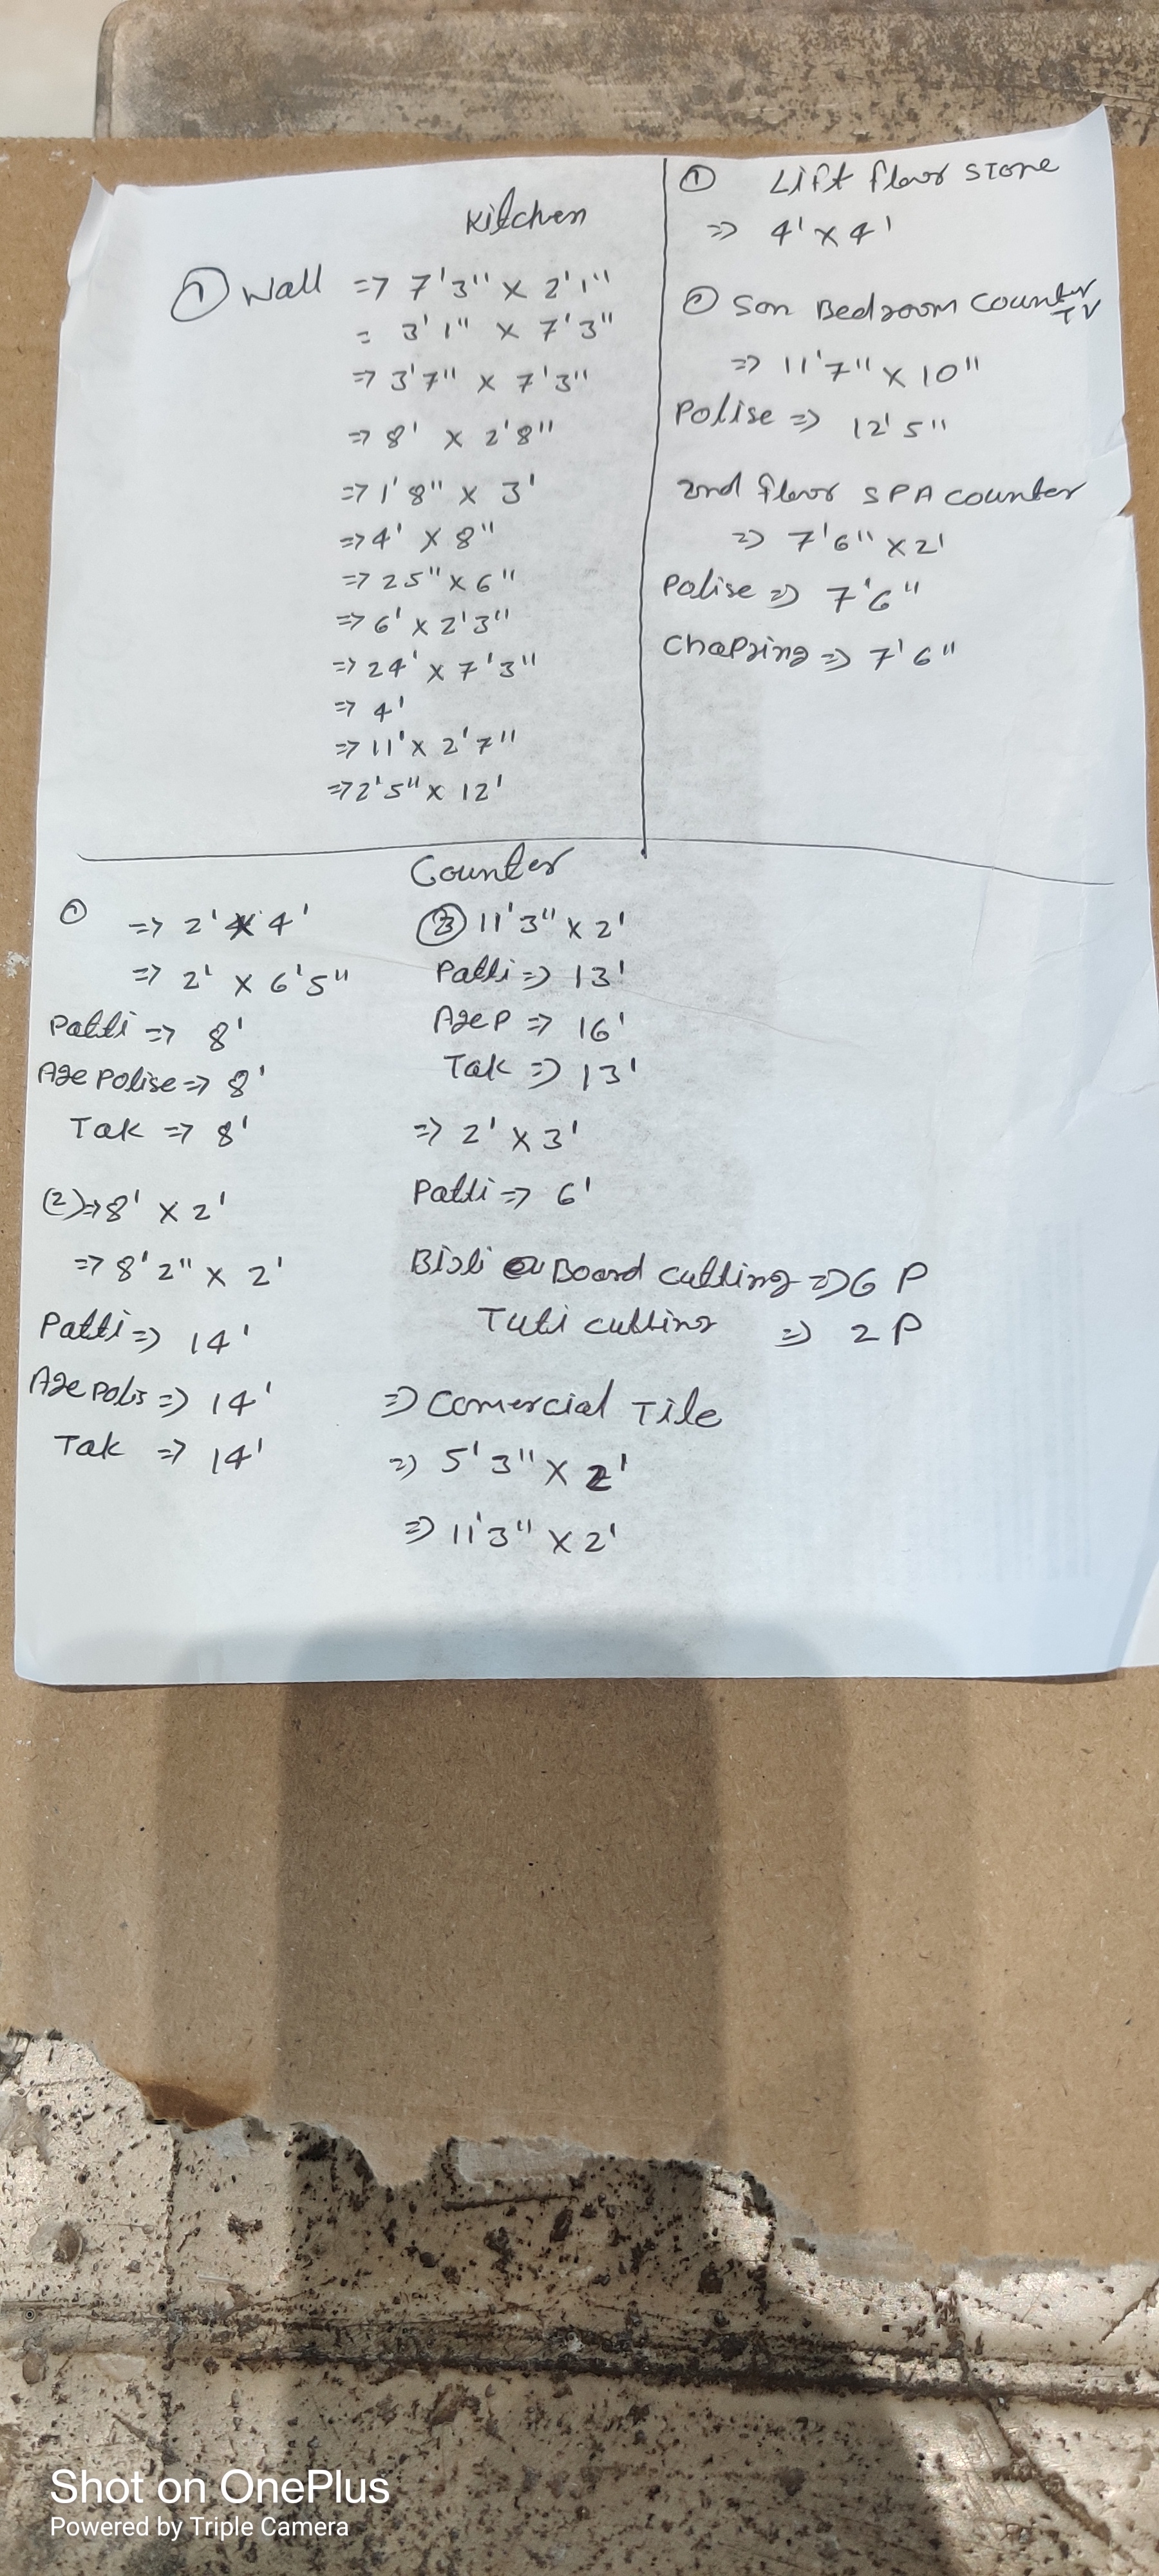 Kitchen
① Wall => 7'3" x 2'1"
= 3'1" x 7'3"
=> 3'7" x 7'3"
=> 8' x 2'8"
=> 1'8" x 3'
=> 4' x 8"
=> 25" x 6"
=> 6' x 2'3"
=> 24' x 7'3"
=> 4'
=> 11' x 2'7"
=> 2'5" x 12'
① Lift floor stone
=> 4' x 4'
② Son Bedroom Counter
TV
=> 11'7" x 10"
Polise => 12'5"
2nd floor SPA counter
=> 7'6" x 2'
Polise => 7'6"
Chapring => 7'6"
Counter
① => 2' x 4'
=> 2' x 6'5"
Patti => 8'
Age Polise => 8'
Tak => 8'
(2) => 8' x 2'
=> 8'2" x 2'
Patti => 14'
Age Polis => 14'
Tak => 14'
③ 11'3" x 2'
Patti => 13'
Age P => 16'
Tak => 13'
=> 2' x 3'
Patti => 6'
Board cutting => 6 P
Tuti cutting => 2 P
=> Comercial Tile
=> 5'3" x 2'
=> 11'3" x 2'
Shot on OnePlus
Powered by Triple Camera